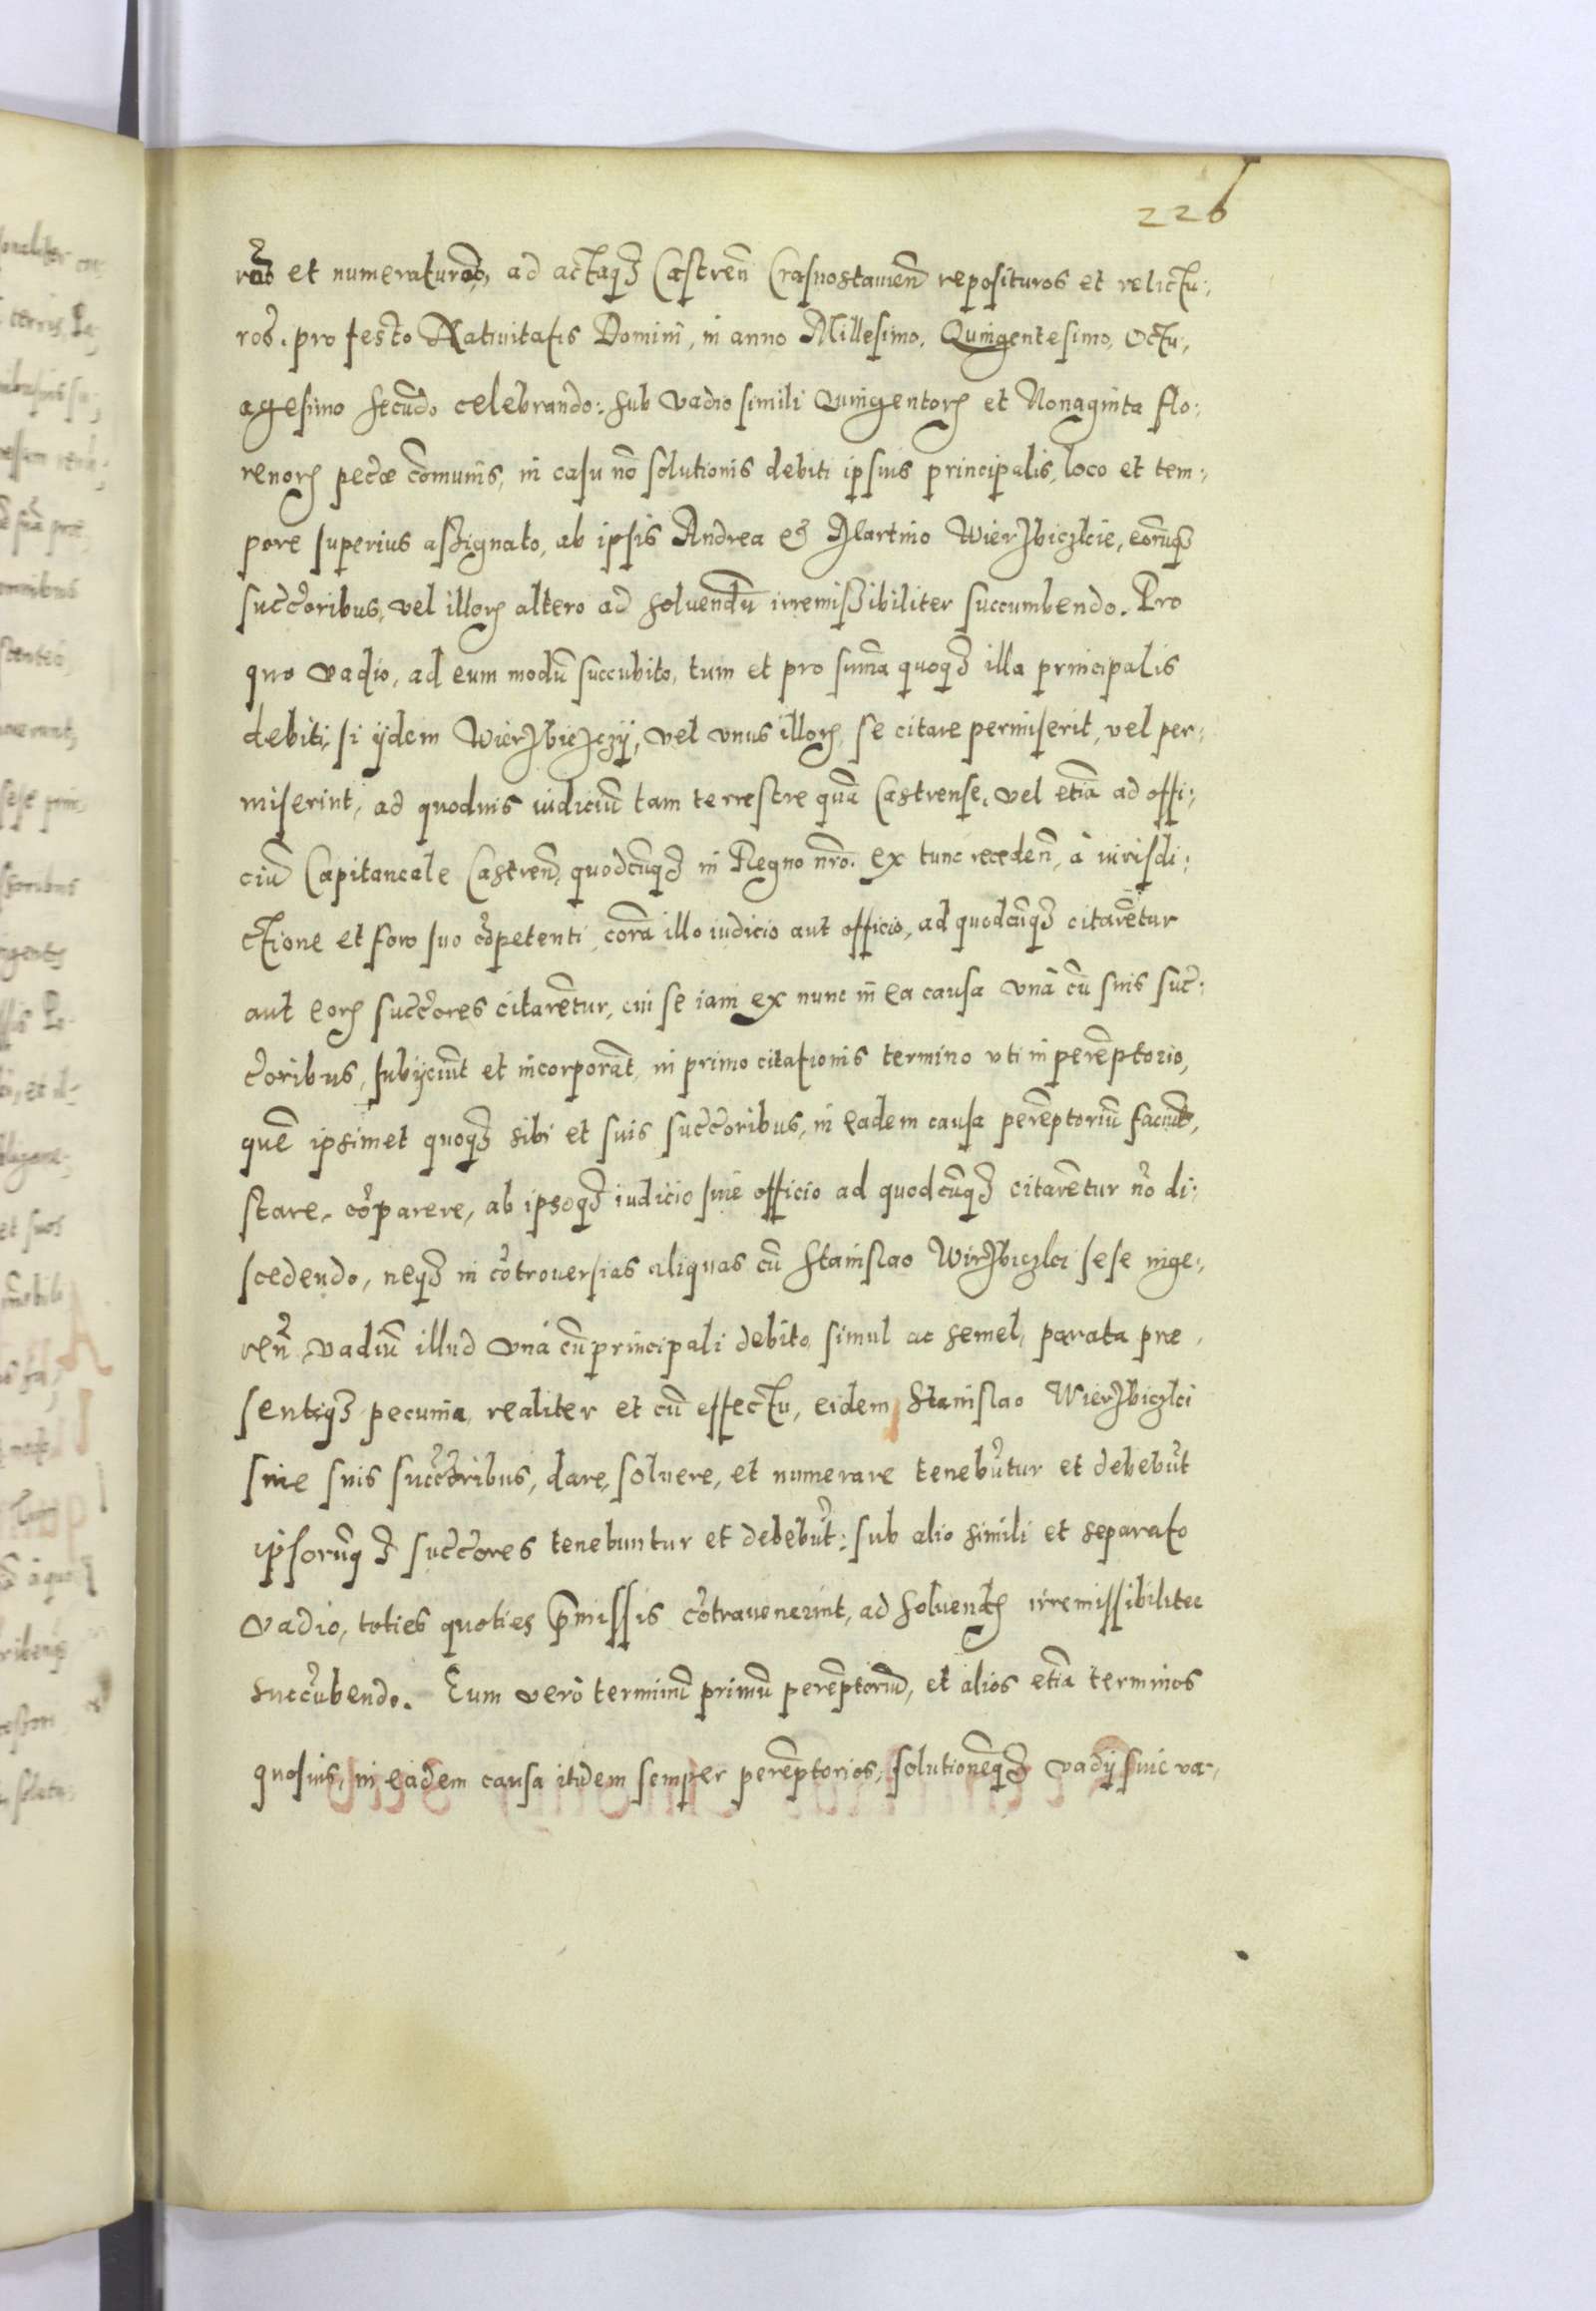 226
ros et numeraturos, ad actaqȝ Castreñ Crasnostauieñ reposituros et relictu:
ros. pro festo Natiuitatis Domini, in anno Millesimo, Quingentesimo, Octu:
agesimo secũdo celebrando: sub vadio simili Quingentorꝝ et Nonaginta flo:
renorꝝ pecȃe cõmunis, in casu nõ solutionis debiti ipsius principalis, loco et tem:
pore superius assignato, ab ipsis Andrea et Martino Wierzbiczkie, eorũqȝ
succoribus, vel illorꝝ altero ad soluendũ irremissibiliter succumbendo. Pro
quo vadio, ad eum modũ succubito, tum et pro sum̃a quoqȝ illa principalis
debiti, si ijdem Wierzbiczczij, vel vnus illorꝝ, se citare permiserit, vel per:
miserint, ad quoduis iudiciũ tam terrestre quã Castrense, vel etiã ad offi:
ciũ Capitaneale Castreñ, quodcũqȝ in Regno nr̃o. ex tunc recedeñ, à iurisdi:
ctione et foro suo cõpetenti, corã illo iudicio aut officio, ad quodcũqȝ citarẽtur
aut eorꝝ succores citarẽtur, cui se iam ex nunc in ea causa vnà cũ suis suc:
coribus, subijciũt et incorporãt, in primo citationis termino vti in perẽptorio,
quẽ ipsimet quoqȝ sibi et suis succoribus, in eadem causa perẽptoriũ faciũt,
stare, cõparere, ab ipsoqȝ iudicio siue officio ad quodcũqȝ citarẽtur nõ di:
scedendo, neqȝ in cõtrouersias aliquas cũ Stanislao Wirzbiczki sese inge:
reñ, vadiũ illud vnà cũ principali debito, simul ac semel, parata prae
sentiqȝ pecunia, realiter et cũ effectu, eidem Stanislao Wierzbiczki
siue suis succoribus, dare, soluere, et numerare tenebũtur et debebũt
ipsorũqȝ succores tenebuntur et debebũt: sub alio simili et separato
vadio, toties quoties p̃missis cõtrauenerint, ad soluendꝝ irremissibiliter
succũbendo. Eum verò terminũ primũ perẽptoriũ, et alios etiã terminos
quosuis, in eadem causa itidem semper perẽptorios, solutionẽqȝ vadij siue va: